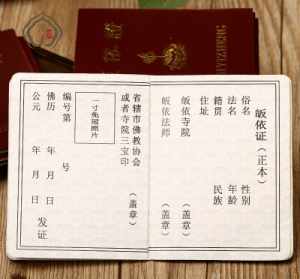 皈依证
GUIYIZHENG
皈依证（正本）
俗名 性别
法名 年龄
籍贯 民族
住址
皈依寺院 （盖章）
皈依法师 （盖章）
省辖市佛教协会
或者寺院三宝印
（盖章）
一寸免冠照片
编号第 号
佛历 年 月 日
公元 年 月 日 发证